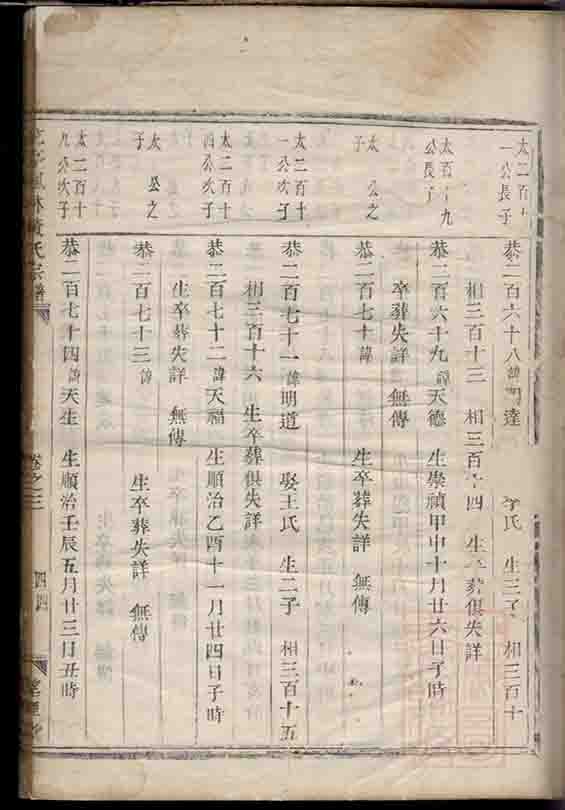 太二百十
一公長子
恭二百六十八諱明達 李氏 生三子 相三百十
相三百十三 相三百十四 生卒葬俱失詳
太百十九
公長子
恭二百六十九諱天德 生崇禎甲申十月廿六日子時
卒葬失詳 無傳
太 公之
子
恭二百七十諱 生卒葬失詳 無傳
太二百十
一公次子
恭二百七十一諱明道 娶王氏 生二子 相三百十五
相三百十六 生卒葬俱失詳
太二百十
四公次子
恭二百七十二諱天福 生順治乙酉十一月廿四日子時
生卒葬失詳 無傳
太 公之
子
恭二百七十三諱 生卒葬失詳 無傳
太二百十
九公次子
恭二百七十四諱天生 生順治壬辰五月廿三日丑時
林黃氏宗譜 卷之三 四四